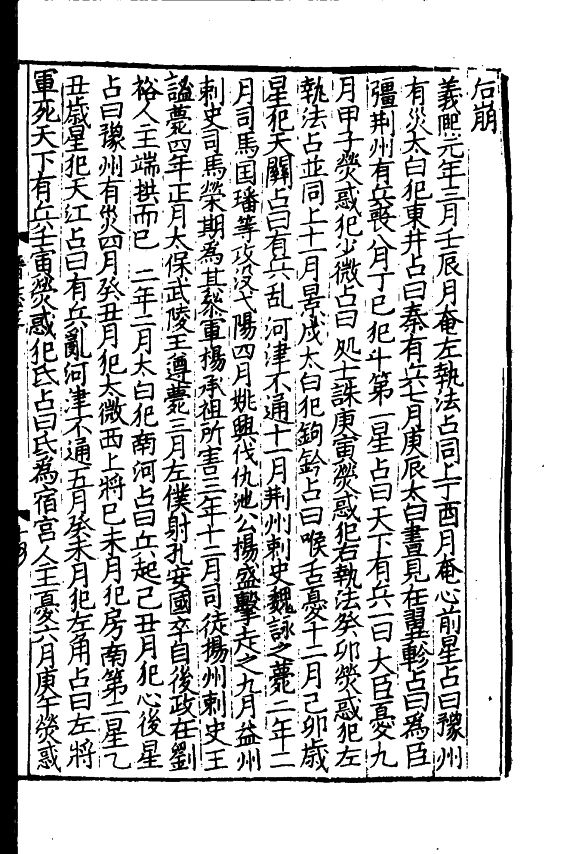 后崩
義熙元年三月壬辰月奄左執法占同上丁酉月奄心前星占曰豫州
有災太白犯東井占曰秦有兵七月庚辰太白晝見在翼軫占曰為臣
彊荆州有兵喪八月丁巳犯斗第一星占曰天下有兵一曰大臣憂九
月甲子熒惑犯少微占曰処士誅庚寅熒惑犯右執法癸卯熒惑犯左
執法占並同上十一月景戌太白犯鉤鈐占曰喉舌憂十二月己卯歳
星犯天關占曰有兵乱河津不通十一月荆州刺史魏詠之薨二年二
月司馬国璠等攻没弋陽四月姚興伐仇池公楊盛擊走之九月益州
刺史司馬榮期為其叅軍楊承祖所害三年十二月司徒揚州刺史王
謐薨四年正月太保武陵王遵薨三月左僕射孔安國卒自後政在劉
裕人主端拱而已 二年二月太白犯南河占曰兵起己丑月犯心後星
占曰豫州有災四月癸丑月犯太微西上將己未月犯房南第二星乙
丑歳星犯天江占曰有兵亂河津不通五月癸未月犯左角占曰左將
軍死天下有兵壬寅熒惑犯氐占曰氐為宿宮人主憂六月庚午熒惑